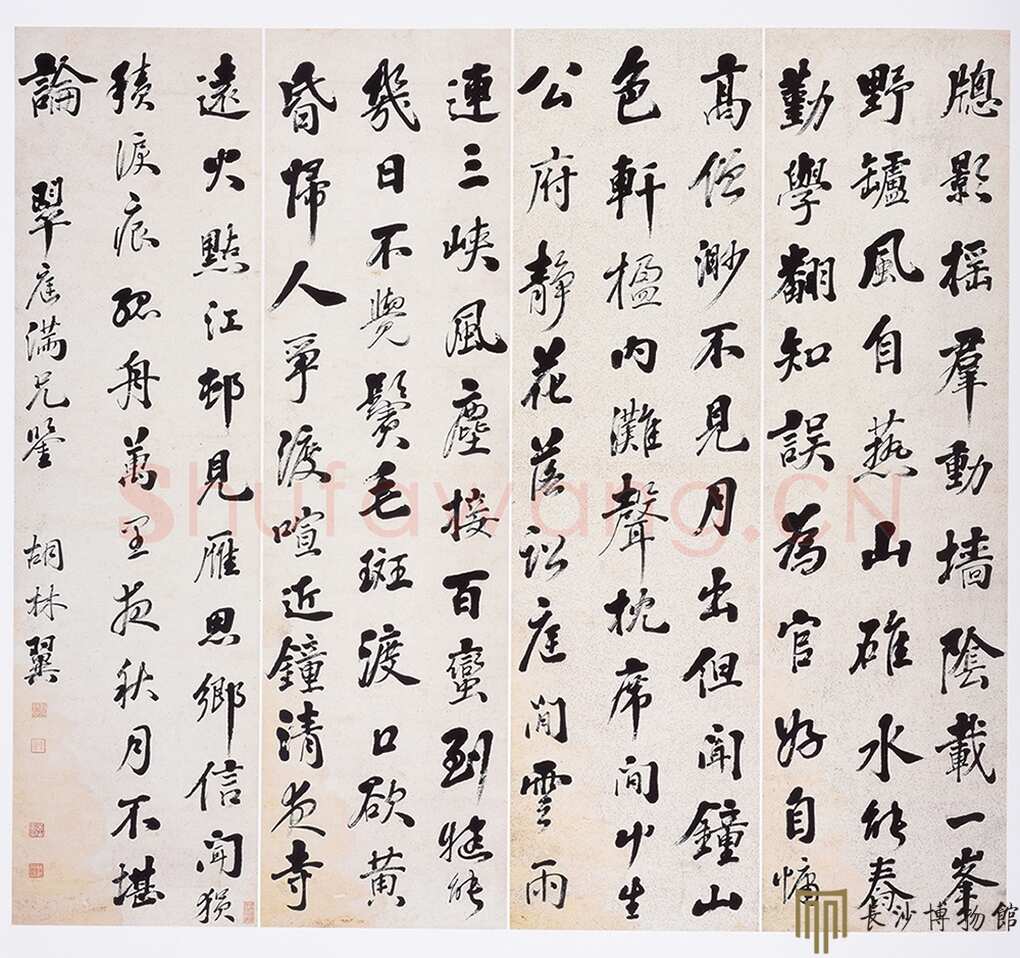 牕影摇羣動墙陰載一峯
野罏風自爇山碓水能舂
勤學翻知誤為官好自慵
高僧渺不見月出但聞鐘山
色軒楹内灘聲枕席間艸生
公府静花落訟庭閒雲雨
連三峡風塵接百蠻到犍能
幾日不覺鬢毛斑渡口欲黄
昏歸人爭渡喧近鐘清夜寺
遠火點江邨見雁思鄉信聞猿
積淚痕孤舟萬里夜秋月不堪
論
翠崖滿兄鑒 胡林翼
Shufawang.CN
長沙博物館